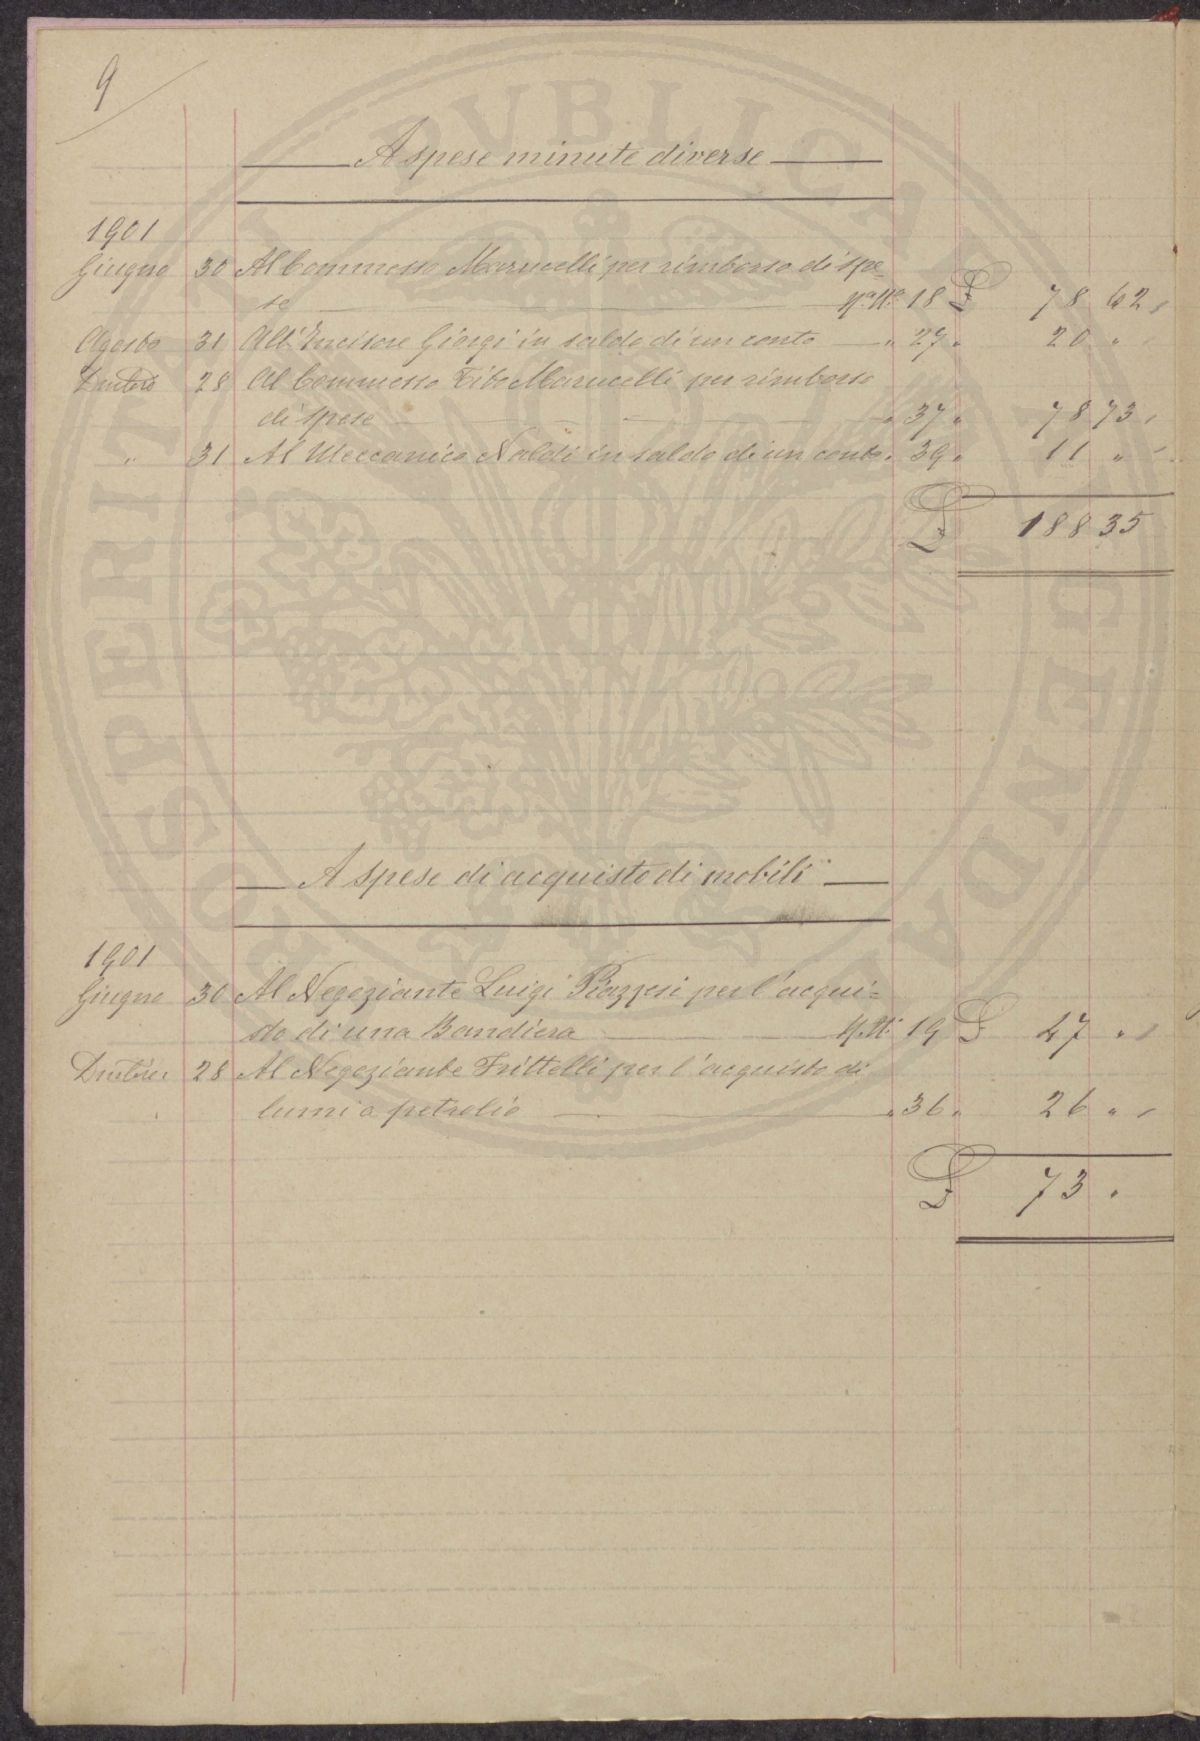 9
A spese minute diverse
1901
Giugno 30 Al Commesso Marucelli per rimborso di spe-
se N.º 18 £ 78 62 "
Agosto 31 All'Incisore Giorgi in saldo di un conto " 27 " 20 " "
28 Al Commesso Tito Marucelli per rimborso
di spese " 37 " 78 73 "
" 31 Al Meccanico Naldi in saldo di un conto " 39 " 11 " "
£ 188 35
A spese di acquisto di mobili
1901
Giugno 30 Al Negoziante Luigi Piazzesi per l'acqui=
sto di una Bandiera 19 £ 47 " "
28 Al Negoziante Frittelli per l'acquisto di
lumi a petrolio " 36 " 26 " "
£ 73 "
PROSPERITATI PVBLICAE AVGENDAE